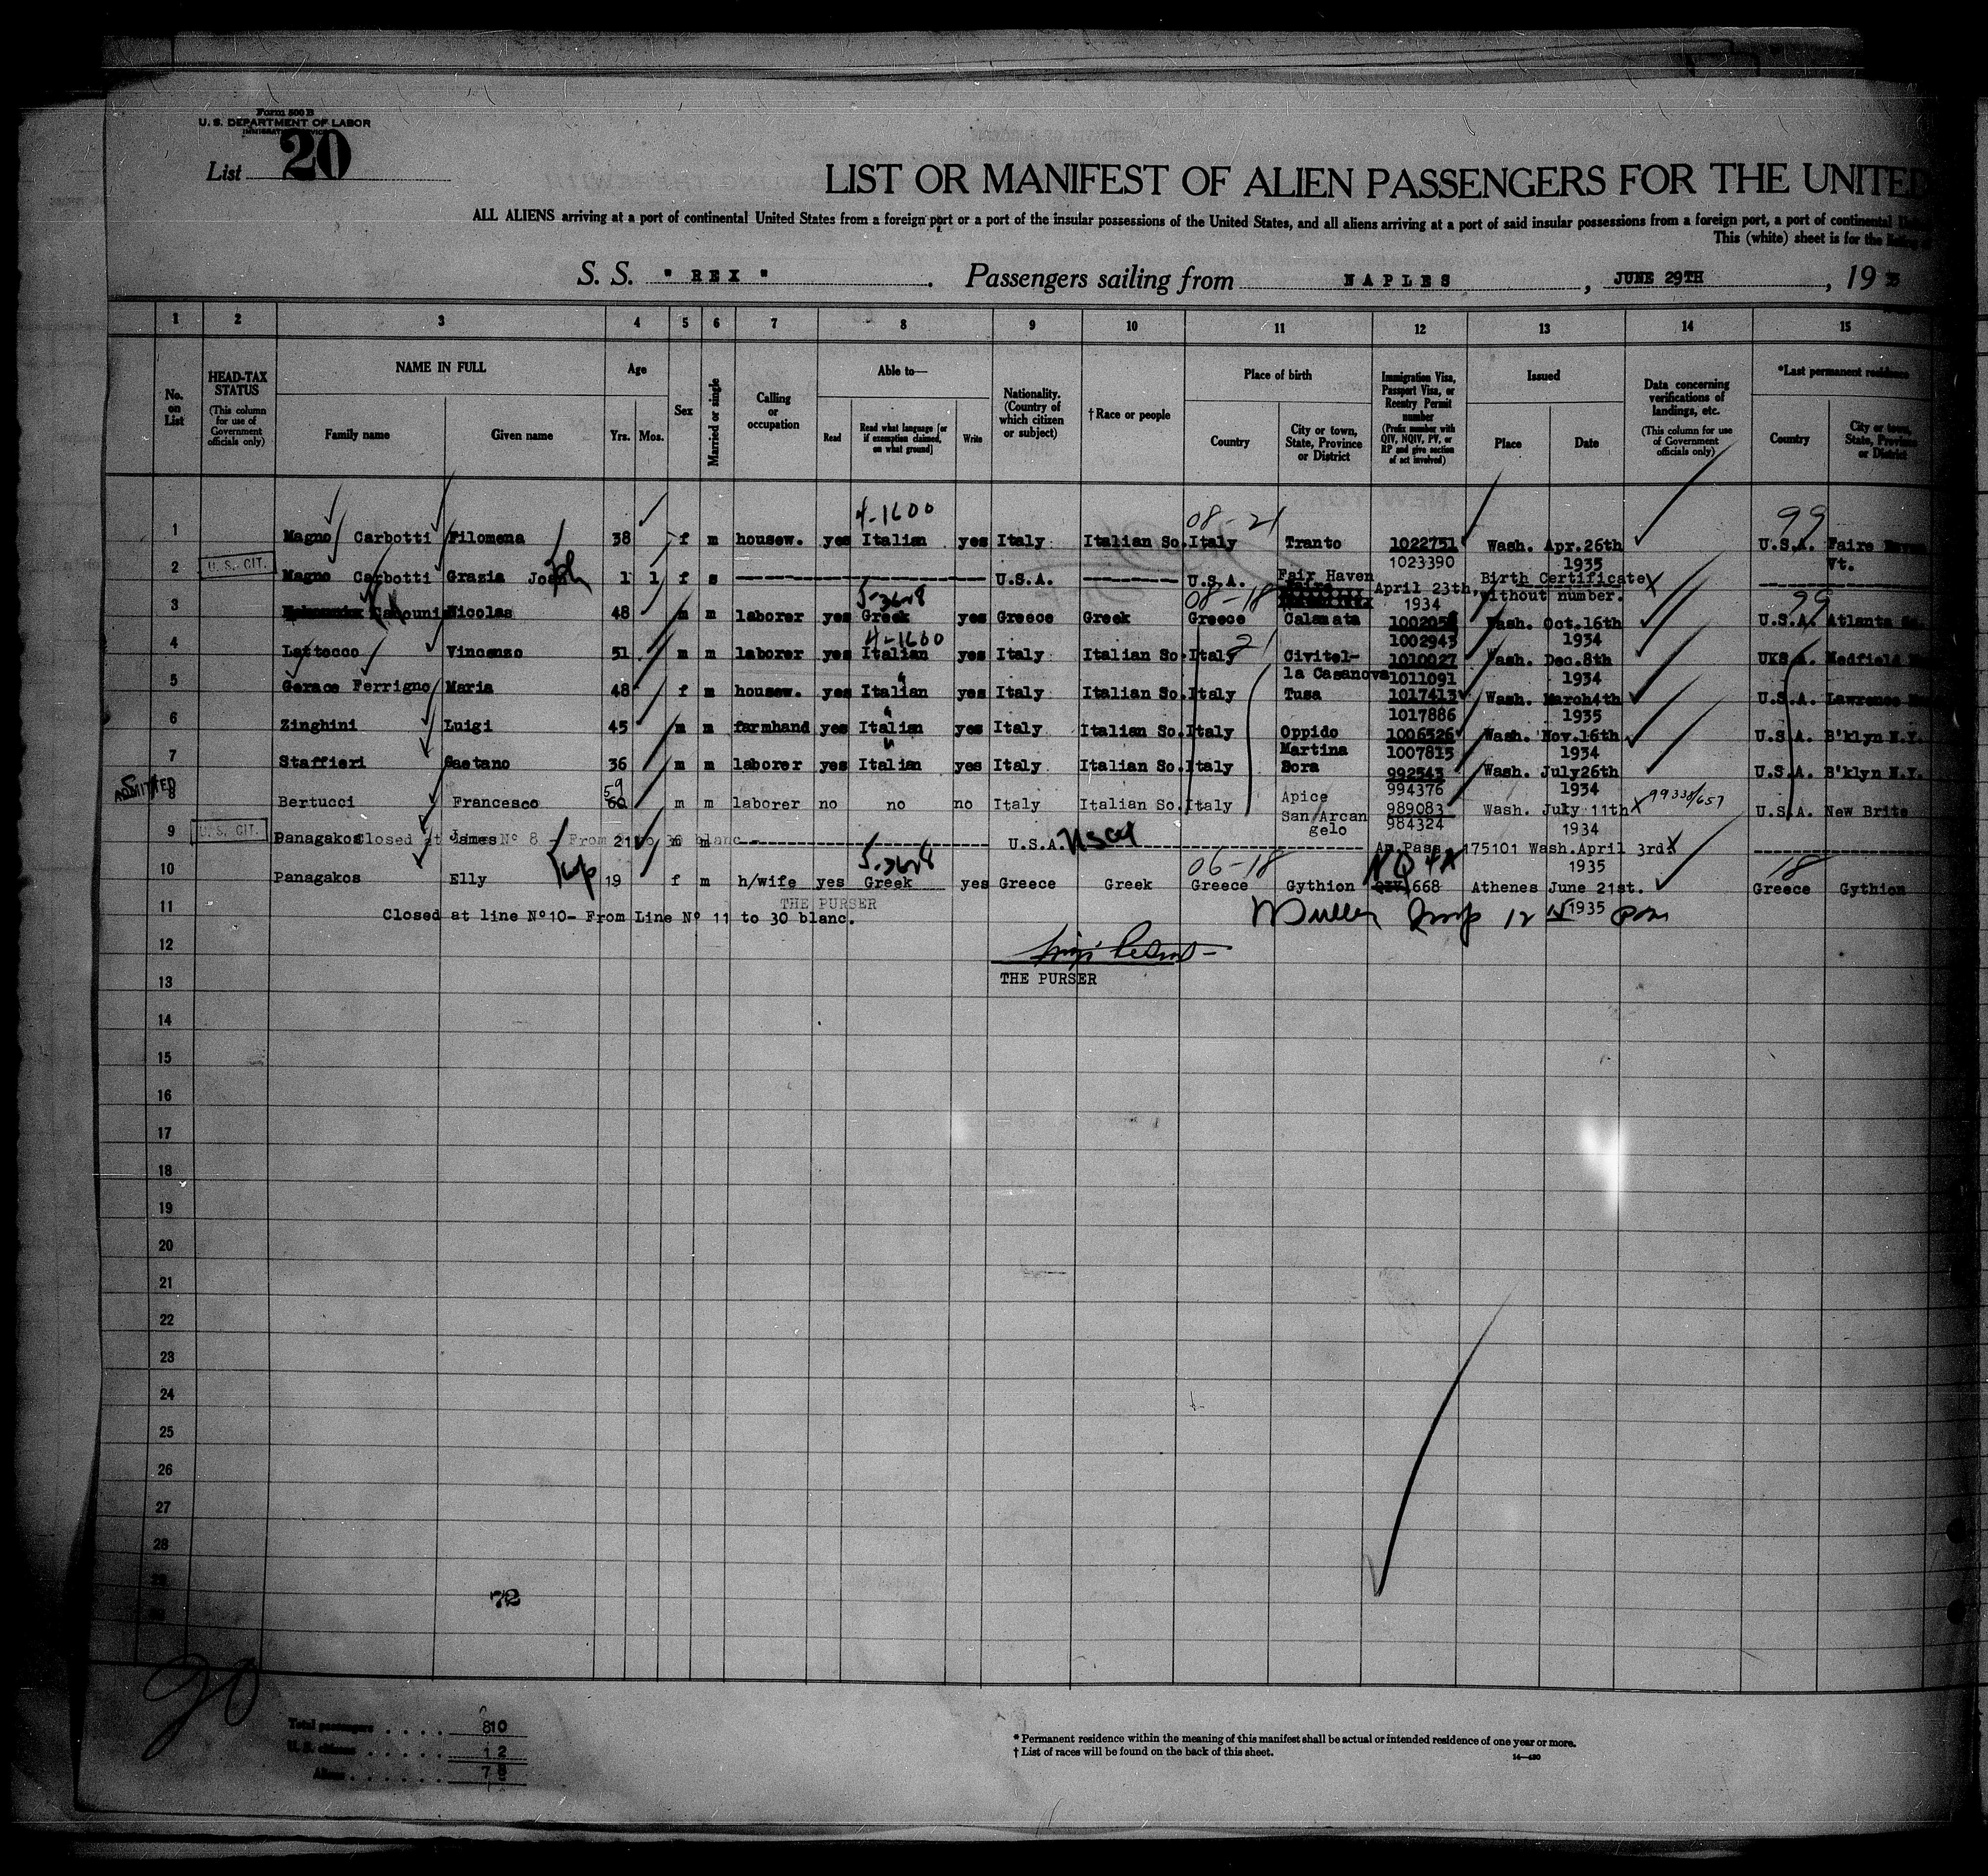 Form 500 B
U. S. DEPARTMENT OF LABOR
IMMIGRATION SERVICE
List 20
LIST OR MANIFEST OF ALIEN PASSENGERS FOR THE UNITED
ALL ALIENS arriving at a port of continental United States from a foreign port or a port of the insular possessions of the United States, and all aliens arriving at a port of said insular possessions from a foreign port, a port of continental
This (white) sheet is for the listing
S. S. " REX " . Passengers sailing from NAPLES , JUNE 29TH , 19 35
1 2 3 4 5 6 7 8 9 10 11 12 13 14 15
No. on List
HEAD-TAX STATUS (This column for use of Government officials only)
NAME IN FULL
Family name Given name
Age
Yrs. Mos.
Sex
Married or single
Calling or occupation
Able to—
Read Read what language [or if exemption claimed, on what ground] Write
Nationality. (Country of which citizen or subject)
† Race or people
Place of birth
Country City or town, State, Province or District
Immigration Visa, Passport Visa, or Reentry Permit number (Prefix number with QIV, NQIV, PV, or RP and give section of act involved)
Issued
Place Date
Data concerning verifications of landings, etc. (This column for use of Government officials only)
*Last permanent residence
Country City or town, State, Province or District
4-1600 08-21 99
1 Magno Carbotti Filomena 38 f m housew. yes Italian yes Italy Italian So. Italy Tranto 1022751 1023390 Wash. Apr.26th 1935 U.S.A. Faire Vt.
U. S. CIT.
2 Magno Carbotti Grazia Joan 1 1 f s U.S.A. U.S.A. Fair Haven April 23th, 1934 Birth Certificate without number.
5-3628 08-18 99
3 Cahounis Nicolas 48 m m laborer yes Greek yes Greece Greek Greece Calamata 1002943 Wash. Oct.16th 1934 U.S.A. Atlanta
4-1600 21
4 Lattocco Vincenzo 51 m m laborer yes Italian yes Italy Italian So. Italy Civitel-la Casanova 1010027 1011091 Wash. Dec.8th 1934 Medfield
5 Gerace Ferrigno Maria 48 f m housew. yes Italian yes Italy Italian So. Italy Tusa 1017413 1017886 Wash. March4th 1935 U.S.A. Lawrence
6 Zinghini Luigi 45 m m farmhand yes Italian yes Italy Italian So. Italy Oppido Martina 1006526 1007815 Wash. Nov.16th 1934 U.S.A. B'klyn N.Y.
7 Staffieri Gaetano 36 m m laborer yes Italian yes Italy Italian So. Italy Sora 992543 994376 Wash. July26th 1934 U.S.A. B'klyn N.Y.
ADMITTED
8 Bertucci Francesco 59 60 m m laborer no no no Italy Italian So. Italy Apice San/Arcangelo 989083 984324 Wash. July 11th 1934 U.S.A. New Brite
U. S. CIT.
9 Panagakos James 21 m m U.S.A. USCit Am.Pass. 175101 Wash.April 3rd. 1935
Closed at Nº 8 - From to 30 blanc
5-3628 06-18 NQ 4A 18
10 Panagakos Elly 19 f m h/wife yes Greek yes Greece Greek Greece Gythion 668 Athenes June 21st. 1935 Greece Gythion
THE PURSER
11 Closed at line Nº10- From Line Nº 11 to 30 blanc.
12
THE PURSER
13
14
15
16
17
18
19
20
21
22
23
24
25
26
27
28
29
30
72
20
Total passengers . . . . 810
U. S. citizens . . . . . 12
Aliens . . . . . . 78
* Permanent residence within the meaning of this manifest shall be actual or intended residence of one year or more.
† List of races will be found on the back of this sheet.
14—430